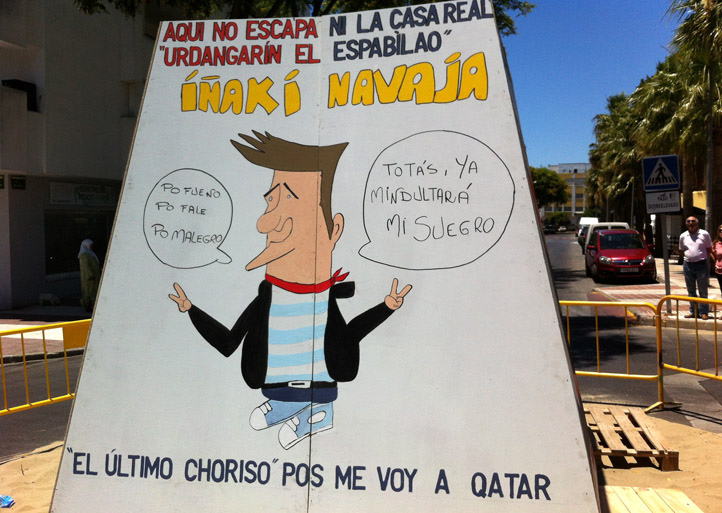 AQUI NO ESCAPA NI LA CASA REAL
"URDANGARÍN EL ESPABÌLAO"
ÍÑAKÍ NAVAJA
PO FUENO
PO FALE
PO MALEGRO
TOTÁS, YA
MINDULTARÁ
MI SUEGRO
"EL ÚLTIMO CHORISO" POS ME VOY A QATAR